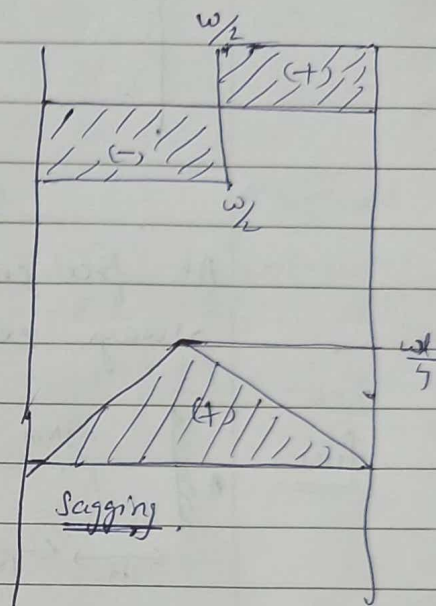 w/2
(+)
(-)
w/2
wl/4
(+)
Sagging.